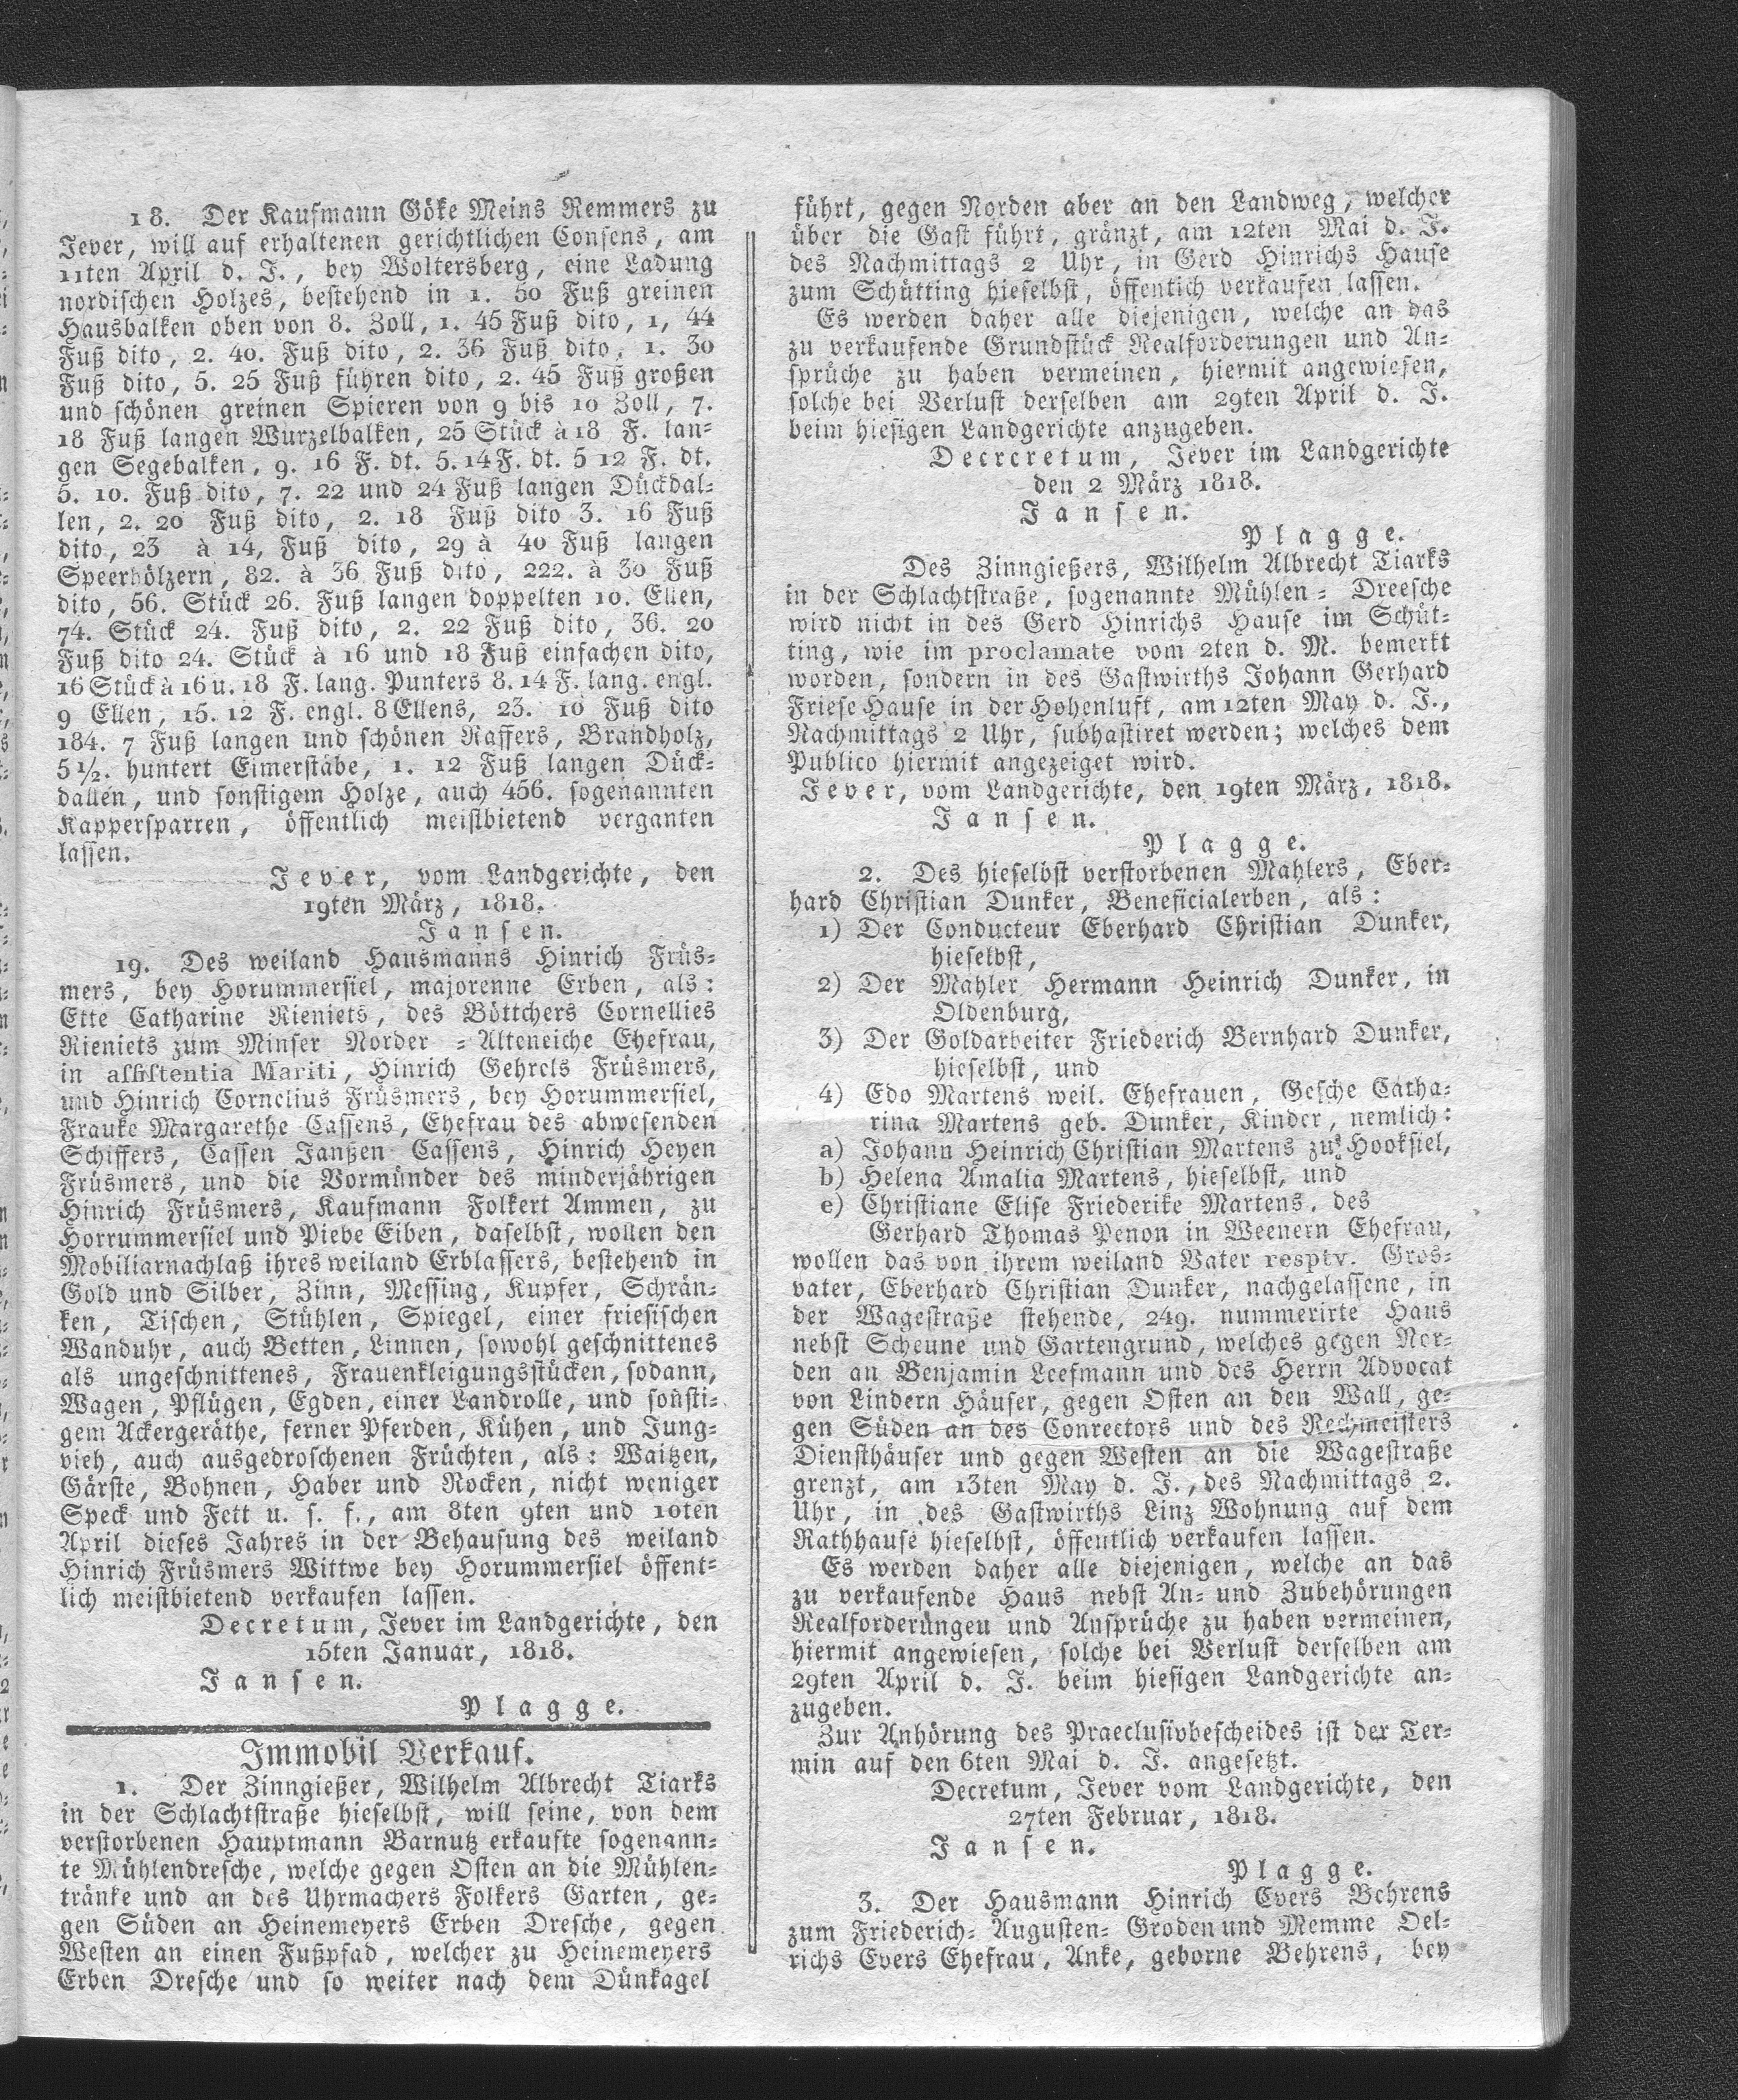 18. Der Kaufmann Göke Meins Remmers zu
Jever, will auf erhaltenen gerichtlichen Consens, am
11ten April d. J., bey Woltersberg, eine Ladung
nordischen Holzes, bestehend in 1. 50 Fuß greinen
Hausbalken oben von 8. Zoll, 1. 45 Fuß dito, 1, 44
Fuß dito, 2. 40. Fuß dito, 2. 36 Fuß dito, 1. 30
Fuß dito, 5. 25 Fuß führen dito, 2. 45 Fuß großen
und schönen greinen Spieren von 9 bis 10 Zoll, 7.
18 Fuß langen Wurzelbalken, 25 Stück à 18 F. lan=
gen Segebalken, 9. 16 F. dt. 5. 14 F. dt. 5 12 F. dt.
5. 10. Fuß dito, 7. 22 und 24 Fuß langen Dückdal=
len, 2. 20 Fuß dito, 2. 18 Fuß dito 3. 16 Fuß
dito, 23 à 14, Fuß dito, 29 à 40 Fuß langen
Speerhölzern, 82. à 36 Fuß dito, 222. à 30 Fuß
dito, 56. Stück 26. Fuß langen doppelten 10. Ellen,
74. Stück 24. Fuß dito, 2. 22 Fuß dito, 36. 20
Fuß dito 24. Stück à 16 und 18 Fuß einfachen dito,
16 Stück à 16 u. 18 F. lang. Punters 8. 14 F. lang. engl.
9 Ellen, 15. 12 F. engl. 8 Ellens, 23. 10 Fuß dito
184. 7 Fuß langen und schönen Raffers, Brandholz,
5 1/2. huntert Eimerstäbe, 1. 12 Fuß langen Dück=
dallen, und sonstigem Holze, auch 456. sogenannten
Kappersparren, öffentlich meistbietend verganten
lassen.
Jever, vom Landgerichte, den
19ten März, 1818.
Jansen.
19. Des weiland Hausmanns Hinrich Früs=
mers, bey Horummersiel, majorenne Erben, als:
Ette Catharine Rieniets, des Böttchers Cornellies
Rieniets zum Minser Norder = Alteneiche Ehefrau,
in assistentia Mariti, Hinrich Gehrels Früsmers,
und Hinrich Cornelius Früsmers, bey Horummersiel,
Frauke Margarethe Cassens, Ehefrau des abwesenden
Schiffers, Cassen Janßen Cassens, Hinrich Heyen
Früsmers, und die Vormünder des minderjährigen
Hinrich Früsmers, Kaufmann Folkert Ammen, zu
Horrummersiel und Piebe Eiben, daselbst, wollen den
Mobiliarnachlaß ihres weiland Erblassers, bestehend in
Gold und Silber, Zinn, Messing, Kupfer, Schrän=
ken, Tischen, Stühlen, Spiegel, einer friesischen
Wanduhr, auch Betten, Linnen, sowohl geschnittenes
als ungeschnittenes, Frauenkleigungsstücken, sodann,
Wagen, Pflügen, Egden, einer Landrolle, und sonsti=
gem Ackergeräthe, ferner Pferden, Kühen, und Jung=
vieh, auch ausgedroschenen Früchten, als: Waitzen,
Gärste, Bohnen, Haber und Rocken, nicht weniger
Speck und Fett u. s. f., am 8ten 9ten und 10ten
April dieses Jahres in der Behausung des weiland
Hinrich Früsmers Wittwe bey Horummersiel öffent=
lich meistbietend verkaufen lassen.
Decretum, Jever im Landgerichte, den
15ten Januar, 1818.
Jansen.
Plagge.
Immobil Verkauf.
1. Der Zinngießer, Wilhelm Albrecht Tiarks
in der Schlachtstraße hieselbst, will seine, von dem
verstorbenen Hauptmann Barnutz erkaufte sogenann=
te Mühlendresche, welche gegen Osten an die Mühlen=
tränke und an des Uhrmachers Folkers Garten, ge=
gen Süden an Heinemeyers Erben Dresche, gegen
Westen an einen Fußpfad, welcher zu Heinemeyers
Erben Dresche und so weiter nach dem Dünkagel
führt, gegen Norden aber an den Landweg, welcher
über die Gast führt, gränzt, am 12ten Mai d. J.
des Nachmittags 2 Uhr, in Gerd Hinrichs Hause
zum Schütting hieselbst, öffentlich verkaufen lassen.
Es werden daher alle diejenigen, welche an das
zu verkaufende Grundstück Realforderungen und An=
sprüche zu haben vermeinen, hiermit angewiesen,
solche bei Verlust derselben am 29ten April d. J.
beim hiesigen Landgerichte anzugeben.
Decrcretum, Jever im Landgerichte
den 2 März 1818.
Jansen.
Plagge.
Des Zinngießers, Wilhelm Albrecht Tiarks
in der Schlachtstraße, sogenannte Mühlen = Dreesche
wird nicht in des Gerd Hinrichs Hause im Schüt=
ting, wie im proclamate vom 2ten d. M. bemerkt
worden, sondern in des Gastwirths Johann Gerhard
Friese Hause in der Hohenluft, am 12ten May d. J.,
Nachmittags 2 Uhr, subhastiret werden; welches dem
Publico hiermit angezeiget wird.
Jever, vom Landgerichte, den 19ten März, 1818.
Jansen.
Plagge.
2. Des hieselbst verstorbenen Mahlers, Eber=
hard Christian Dunker, Beneficialerben, als:
1) Der Conducteur Eberhard Christian Dunker,
hieselbst,
2) Der Mahler Hermann Heinrich Dunker, in
Oldenburg,
3) Der Goldarbeiter Friederich Bernhard Dunker,
hieselbst, und
4) Edo Martens weil. Ehefrauen, Gesche Catha=
rina Martens geb. Dunker, Kinder, nemlich:
a) Johann Heinrich Christian Martens zu Hooksiel,
b) Helena Amalia Martens, hieselbst, und
e) Christiane Elise Friederike Martens, des
Gerhard Thomas Penon in Weenern Ehefrau,
wollen das von ihrem weiland Vater resptv. Gros=
vater, Eberhard Christian Dunker, nachgelassene, in
der Wagestraße stehende, 249. nummerirte Haus
nebst Scheune und Gartengrund, welches gegen Nor=
den an Benjamin Leefmann und des Herrn Advocat
von Lindern Häuser, gegen Osten an den Wall, ge=
gen Süden an des Conrectors und des Rechmeisters
Diensthäuser und gegen Westen an die Wagestraße
grenzt, am 13ten May d. J., des Nachmittags 2.
Uhr, in des Gastwirths Linz Wohnung auf dem
Rathhause hieselbst, öffentlich verkaufen lassen.
Es werden daher alle diejenigen, welche an das
zu verkaufende Haus nebst An= und Zubehörungen
Realforderungen und Ansprüche zu haben vermeinen,
hiermit angewiesen, solche bei Verlust derselben am
29ten April d. J. beim hiesigen Landgerichte an=
zugeben.
Zur Anhörung des Praeclusivbescheides ist der Ter=
min auf den 6ten Mai d. J. angesetzt.
Decretum, Jever vom Landgerichte, den
27ten Februar, 1818.
Jansen.
Plagge.
3. Der Hausmann Hinrich Evers Behrens
zum Friederich= Augusten= Groden und Memme Oel=
richs Evers Ehefrau, Anke, geborne Behrens, bey